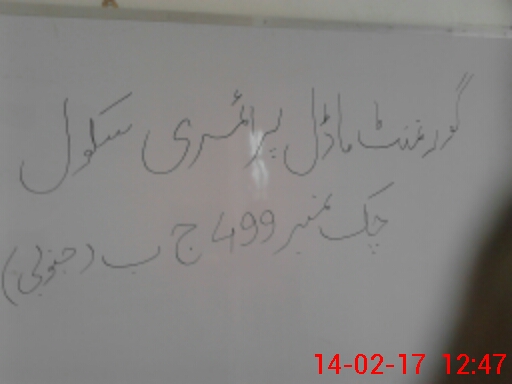 گورنمنٹ ماڈل پرائمری سکول
چک نمبر 499 ج ب (جنوبی)
14-02-17 12:47